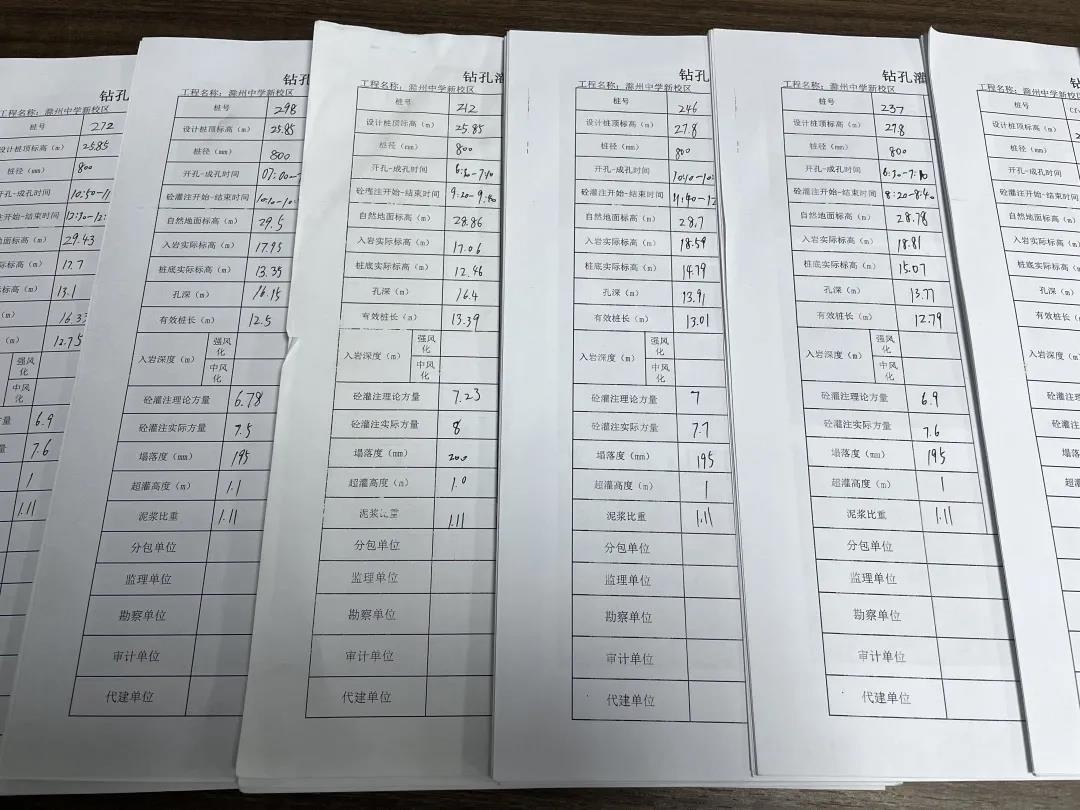 钻孔
工程名称：滁州中学新校区
桩号 272
设计桩顶标高（m） 25.85
桩径（mm） 800
开孔-成孔时间 10:50-11
注开始-结束时间
地面标高（m） 29.43
际标高（m） 17.7
标高（m） 13.1
（m） 16.33
（m） 12.75
强风化
中风化
方量 6.9
量 7.6
1
1.11
钻孔
工程名称：滁州中学新校区
桩号 298
设计桩顶标高（m） 25.85
桩径（mm） 800
开孔-成孔时间 07:00-
砼灌注开始-结束时间 10:10-10:
自然地面标高（m） 29.5
入岩实际标高（m） 17.95
桩底实际标高（m） 13.35
孔深（m） 16.15
有效桩长（m） 12.5
入岩深度（m） 强风化
中风化
砼灌注理论方量 6.78
砼灌注实际方量 7.5
塌落度（mm） 195
超灌高度（m） 1.1
泥浆比重 1.11
分包单位
监理单位
勘察单位
审计单位
代建单位
钻孔
工程名称：滁州中学新校区
桩号 212
设计桩顶标高（m） 25.85
桩径（mm） 800
开孔-成孔时间 6:30-7:40
砼灌注开始-结束时间 9:20-9:40
自然地面标高（m） 28.86
入岩实际标高（m） 17.06
桩底实际标高（m） 12.46
孔深（m） 16.4
有效桩长（m） 13.39
入岩深度（m） 强风化
中风化
砼灌注理论方量 7.23
砼灌注实际方量 8
塌落度（mm） 200
超灌高度（m） 1.0
泥浆比重 1.11
分包单位
监理单位
勘察单位
审计单位
代建单位
钻孔
工程名称：滁州中学新校区
桩号 246
设计桩顶标高（m） 27.8
桩径（mm） 800
开孔-成孔时间 10:40-10:
砼灌注开始-结束时间 11:40-12
自然地面标高（m） 28.7
入岩实际标高（m） 18.59
桩底实际标高（m） 14.79
孔深（m） 13.91
有效桩长（m） 13.01
入岩深度（m） 强风化
中风化
砼灌注理论方量 7
砼灌注实际方量 7.7
塌落度（mm） 195
超灌高度（m） 1
泥浆比重 1.11
分包单位
监理单位
勘察单位
审计单位
代建单位
钻孔灌
工程名称：滁州中学新校区
桩号 237
设计桩顶标高（m） 27.8
桩径（mm） 800
开孔-成孔时间 6:30-7:10
砼灌注开始-结束时间 8:20-8:40
自然地面标高（m） 28.78
入岩实际标高（m） 18.81
桩底实际标高（m） 15.07
孔深（m） 13.71
有效桩长（m） 12.79
入岩深度（m） 强风化
中风化
砼灌注理论方量 6.9
砼灌注实际方量 7.6
塌落度（mm） 195
超灌高度（m） 1
泥浆比重 1.11
分包单位
监理单位
勘察单位
审计单位
代建单位
工程名称：滁州中学新校区
桩号
设计桩顶标高（m）
桩径（mm）
开孔-成孔时间
砼灌注开始-结束时间
自然地面标高（m）
入岩实际标高（m）
桩底实际标高（m）
孔深（m）
有效桩长（m）
入岩深度（m）
砼灌注理
砼灌注实
塌落度
超灌高
泥浆
分包
监
勘